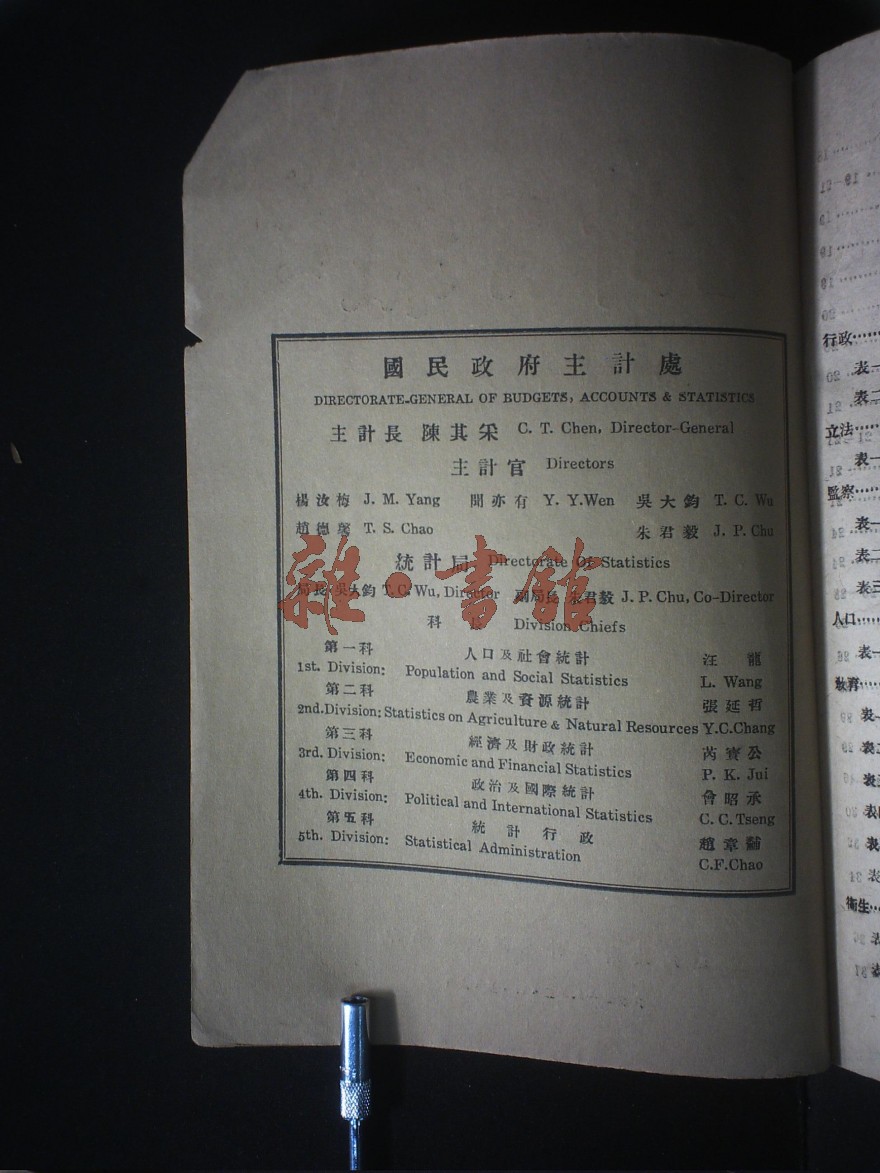 國民政府主計處
DIRECTORATE-GENERAL OF BUDGETS, ACCOUNTS & STATISTICS
主計長 陳其采 C. T. Chen, Director-General
主計官 Directors
楊汝梅 J. M. Yang 聞亦有 Y. Y. Wen 吳大鈞 T. C. Wu
趙德馨 T. S. Chao 朱君毅 J. P. Chu
統計局 Directorate Of Statistics
局長 吳大鈞 T. C. Wu, Director 副局長 朱君毅 J. P. Chu, Co-Director
科長 Division Chiefs
第一科 人口及社會統計 汪龍
1st. Division: Population and Social Statistics L. Wang
第二科 農業及資源統計 張延哲
2nd. Division: Statistics on Agriculture & Natural Resources Y.C.Chang
第三科 經濟及財政統計 芮寶公
3rd. Division: Economic and Financial Statistics P. K. Jui
第四科 政治及國際統計 曾昭承
4th. Division: Political and International Statistics C. C. Tseng
第五科 統計行政 趙章黼
5th. Division: Statistical Administration C.F.Chao
雜·書館
行政
表一
表二
立法
表一
監察
表一
表二
表三
人口
表一
教育
衛生